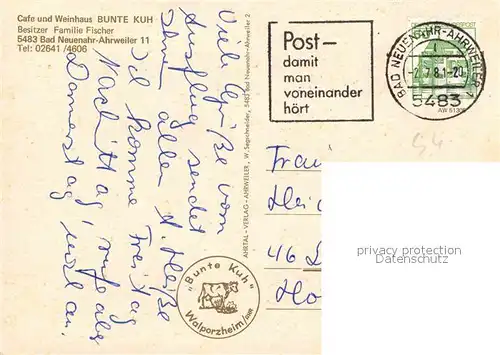 Cafe und Weinhaus BUNTE KUH
Besitzer Familie Fischer
5483 Bad Neuenahr-Ahrweiler 11
Tel. 02641/4606
Viele Grüße vom
Ausflug sendet
Ihnen allen A. Heiße
Ich komme Freitag
Nachmittag, rufe aber
Donnerstag an.
AHRTAL-VERLAG-AHRWEILER, W. Segschneider, 5483 Bad Neuenahr-Ahrweiler 2
Post–
damit
man
voneinander
hört
BAD NEUENAHR-AHRWEILER 1
-2.7.81-20
5483
AW 51305
54.
Frau
46
"Bunte Kuh"
Walporzheim/AHR
privacy protection
Datenschutz